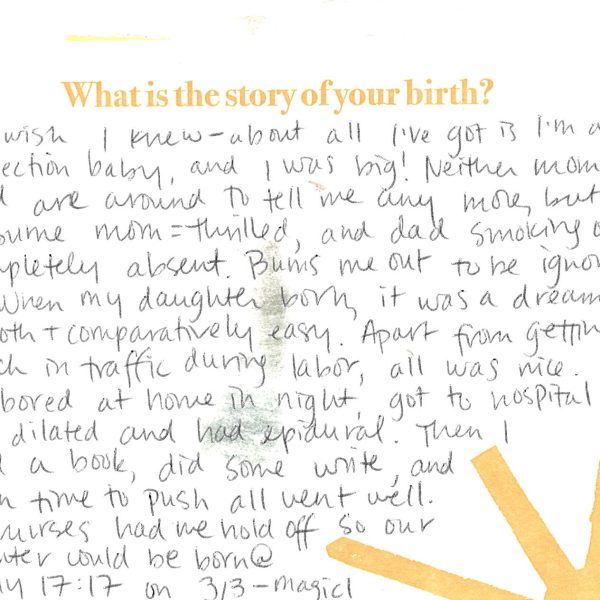 What is the story of your birth?
wish I knew-about all I've got is I'm a
ection baby, and I was big! Neither mom
d are around to tell me any more, but
sume mom=thrilled, and dad smoking o
mpletely absent. Bums me out to be ignor
When my daughter born, it was a dream
oth + comparatively easy. Apart from gettin
ck in traffic during labor, all was nice.
bored at home in night, got to hospital
dilated and had epidural. Then I
d a book, did some write, and
n time to push all went well.
nurses had me hold off so our
hter could be born@
ly 17:17 on 3/3-magic!